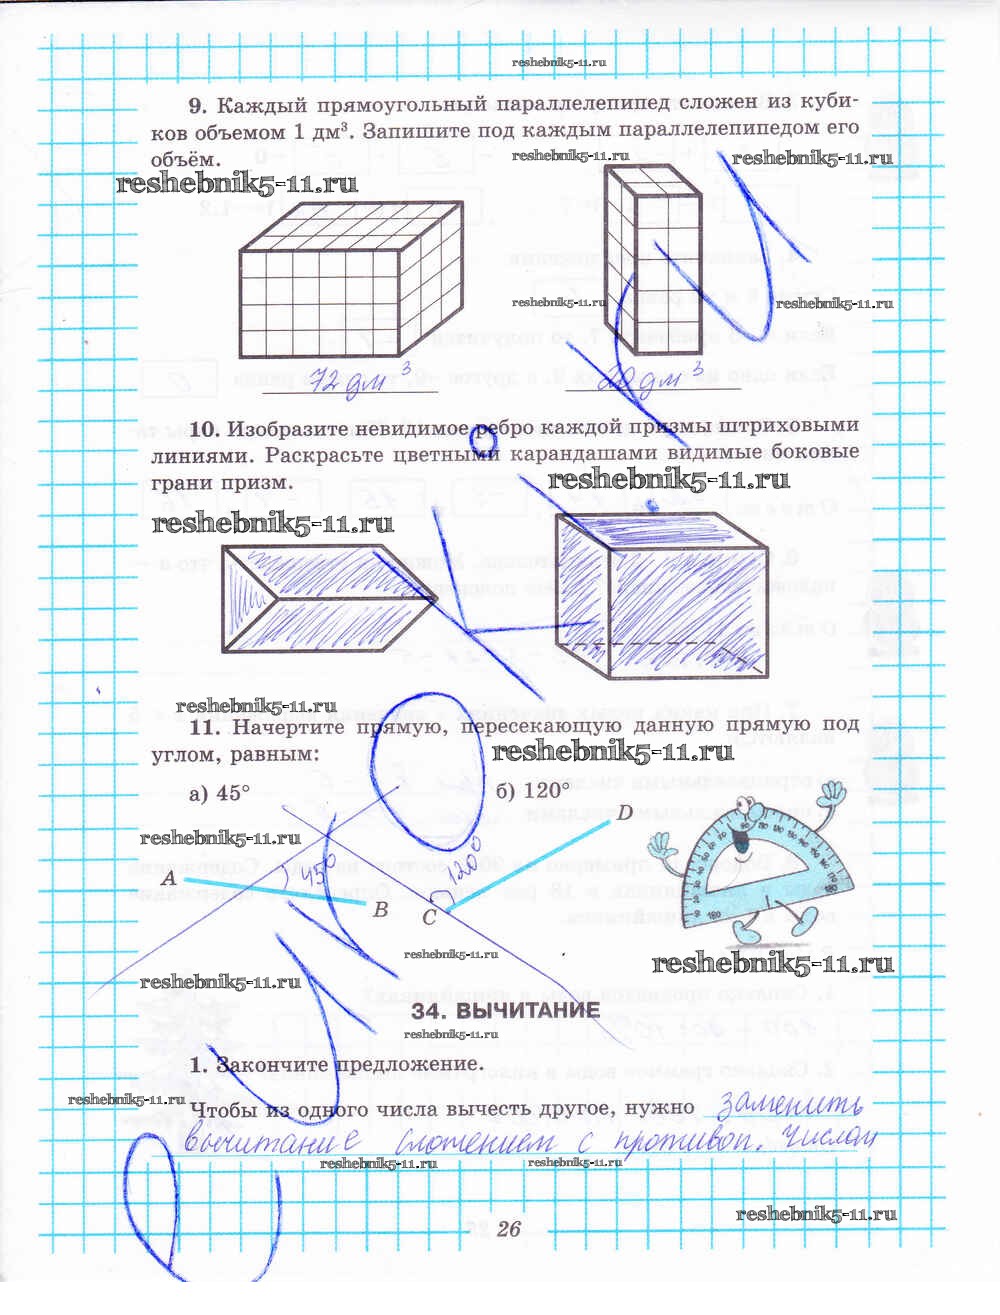 reshebnik5-11.ru
9. Каждый прямоугольный параллелепипед сложен из куби-
ков объемом 1 дм³. Запишите под каждым параллелепипедом его
объём.
reshebnik5-11.ru
reshebnik5-11.ru
reshebnik5-11.ru
reshebnik5-11.ru
reshebnik5-11.ru
72 дм³
20 дм³
10. Изобразите невидимое ребро каждой призмы штриховыми
линиями. Раскрасьте цветными карандашами видимые боковые
грани призм.
reshebnik5-11.ru
reshebnik5-11.ru
reshebnik5-11.ru
11. Начертите прямую, пересекающую данную прямую под
углом, равным:
reshebnik5-11.ru
а) 45°
б) 120°
reshebnik5-11.ru
A
B
45°
120°
C
D
reshebnik5-11.ru
reshebnik5-11.ru
reshebnik5-11.ru
34. ВЫЧИТАНИЕ
reshebnik5-11.ru
1. Закончите предложение.
reshebnik5-11.ru
Чтобы из одного числа вычесть другое, нужно заменить
вычитание сложением с противоп. числом
reshebnik5-11.ru
reshebnik5-11.ru
reshebnik5-11.ru
26